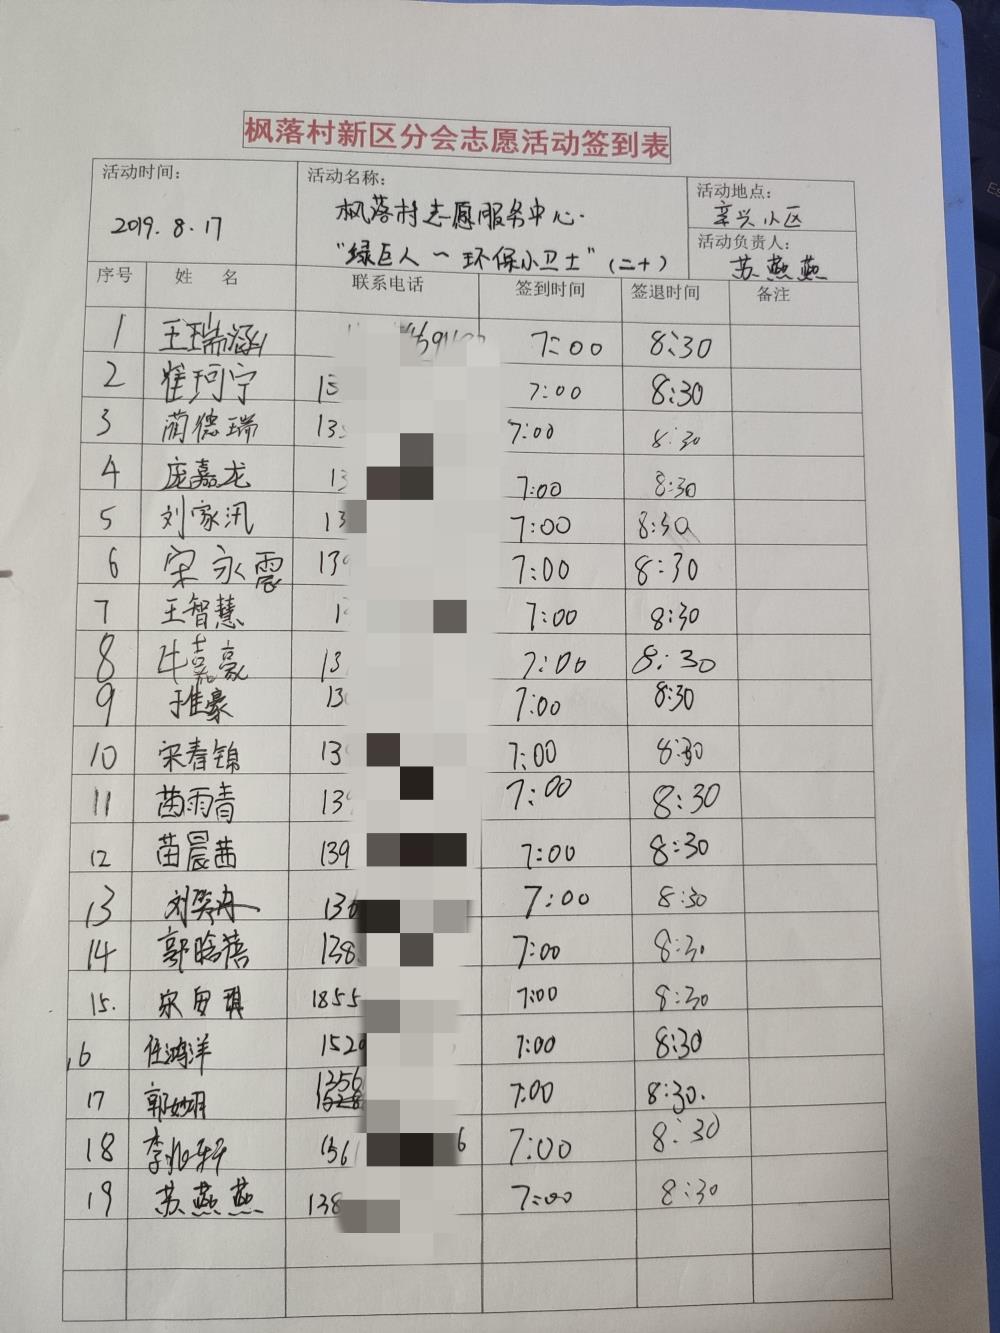 枫落村新区分会志愿活动签到表
活动时间：
2019.8.17
活动名称：
枫落村志愿服务中心.
"绿巨人～环保小卫士"（二十）
活动地点：
辛兴小区
活动负责人：
苏燕燕
序号 姓名 联系电话 签到时间 签退时间 备注
1 王瑞涵 7:00 8:30
2 崔珂宁 13 7:00 8:30
3 蔺德瑞 13 7:00 8:30
4 庞嘉龙 13 7:00 8:30
5 刘家汛 13 7:00 8:30
6 宋永震 139 7:00 8:30
7 王智慧 1 7:00 8:30
8 牛嘉豪 13 7:00 8:30
9 于佳豪 13 7:00 8:30
10 宋春锦 139 7:00 8:30
11 苗雨青 139 7:00 8:30
12 苗晨茜 139 7:00 8:30
13 130 7:00 8:30
14 郭晗蓓 138 7:00 8:30
15. 宋 琪 1855 7:00 8:30
16 任鸿洋 1520 7:00 8:30
17 郭妙玥 1356 7:00 8:30.
18 李兆轩 1361 6 7:00 8:30
19 苏燕燕 138 7:00 8:30